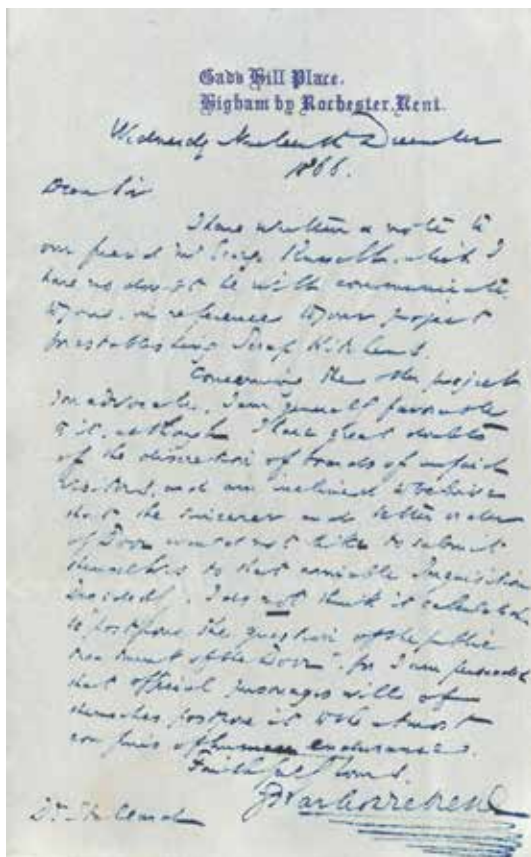 Gads Hill Place.
Higham by Rochester. Kent.
Wednesday Nineteenth December
1866.
Dear Sir
I have written a note to
our friend Mr George Russell, which I
have no doubt he will communicate
to you, in reference to your project
for establishing Soup Kitchens.
Concerning the other project
you advocate, I am generally favorable
to it, although I have great doubts
of the discretion of bands of unpaid
visitors, and am inclined to believe
that the sincerer and better order
of Poor would not like to submit
themselves to that amiable Inquisition
Decidedly I do not think it calculated
to postpone the question of the public
treatment of the Poor; for I am persuaded
that official personages will of
themselves postpone it to the utmost
confines of human endurance.
Faithfully Yours
Charles Dickens
Dr